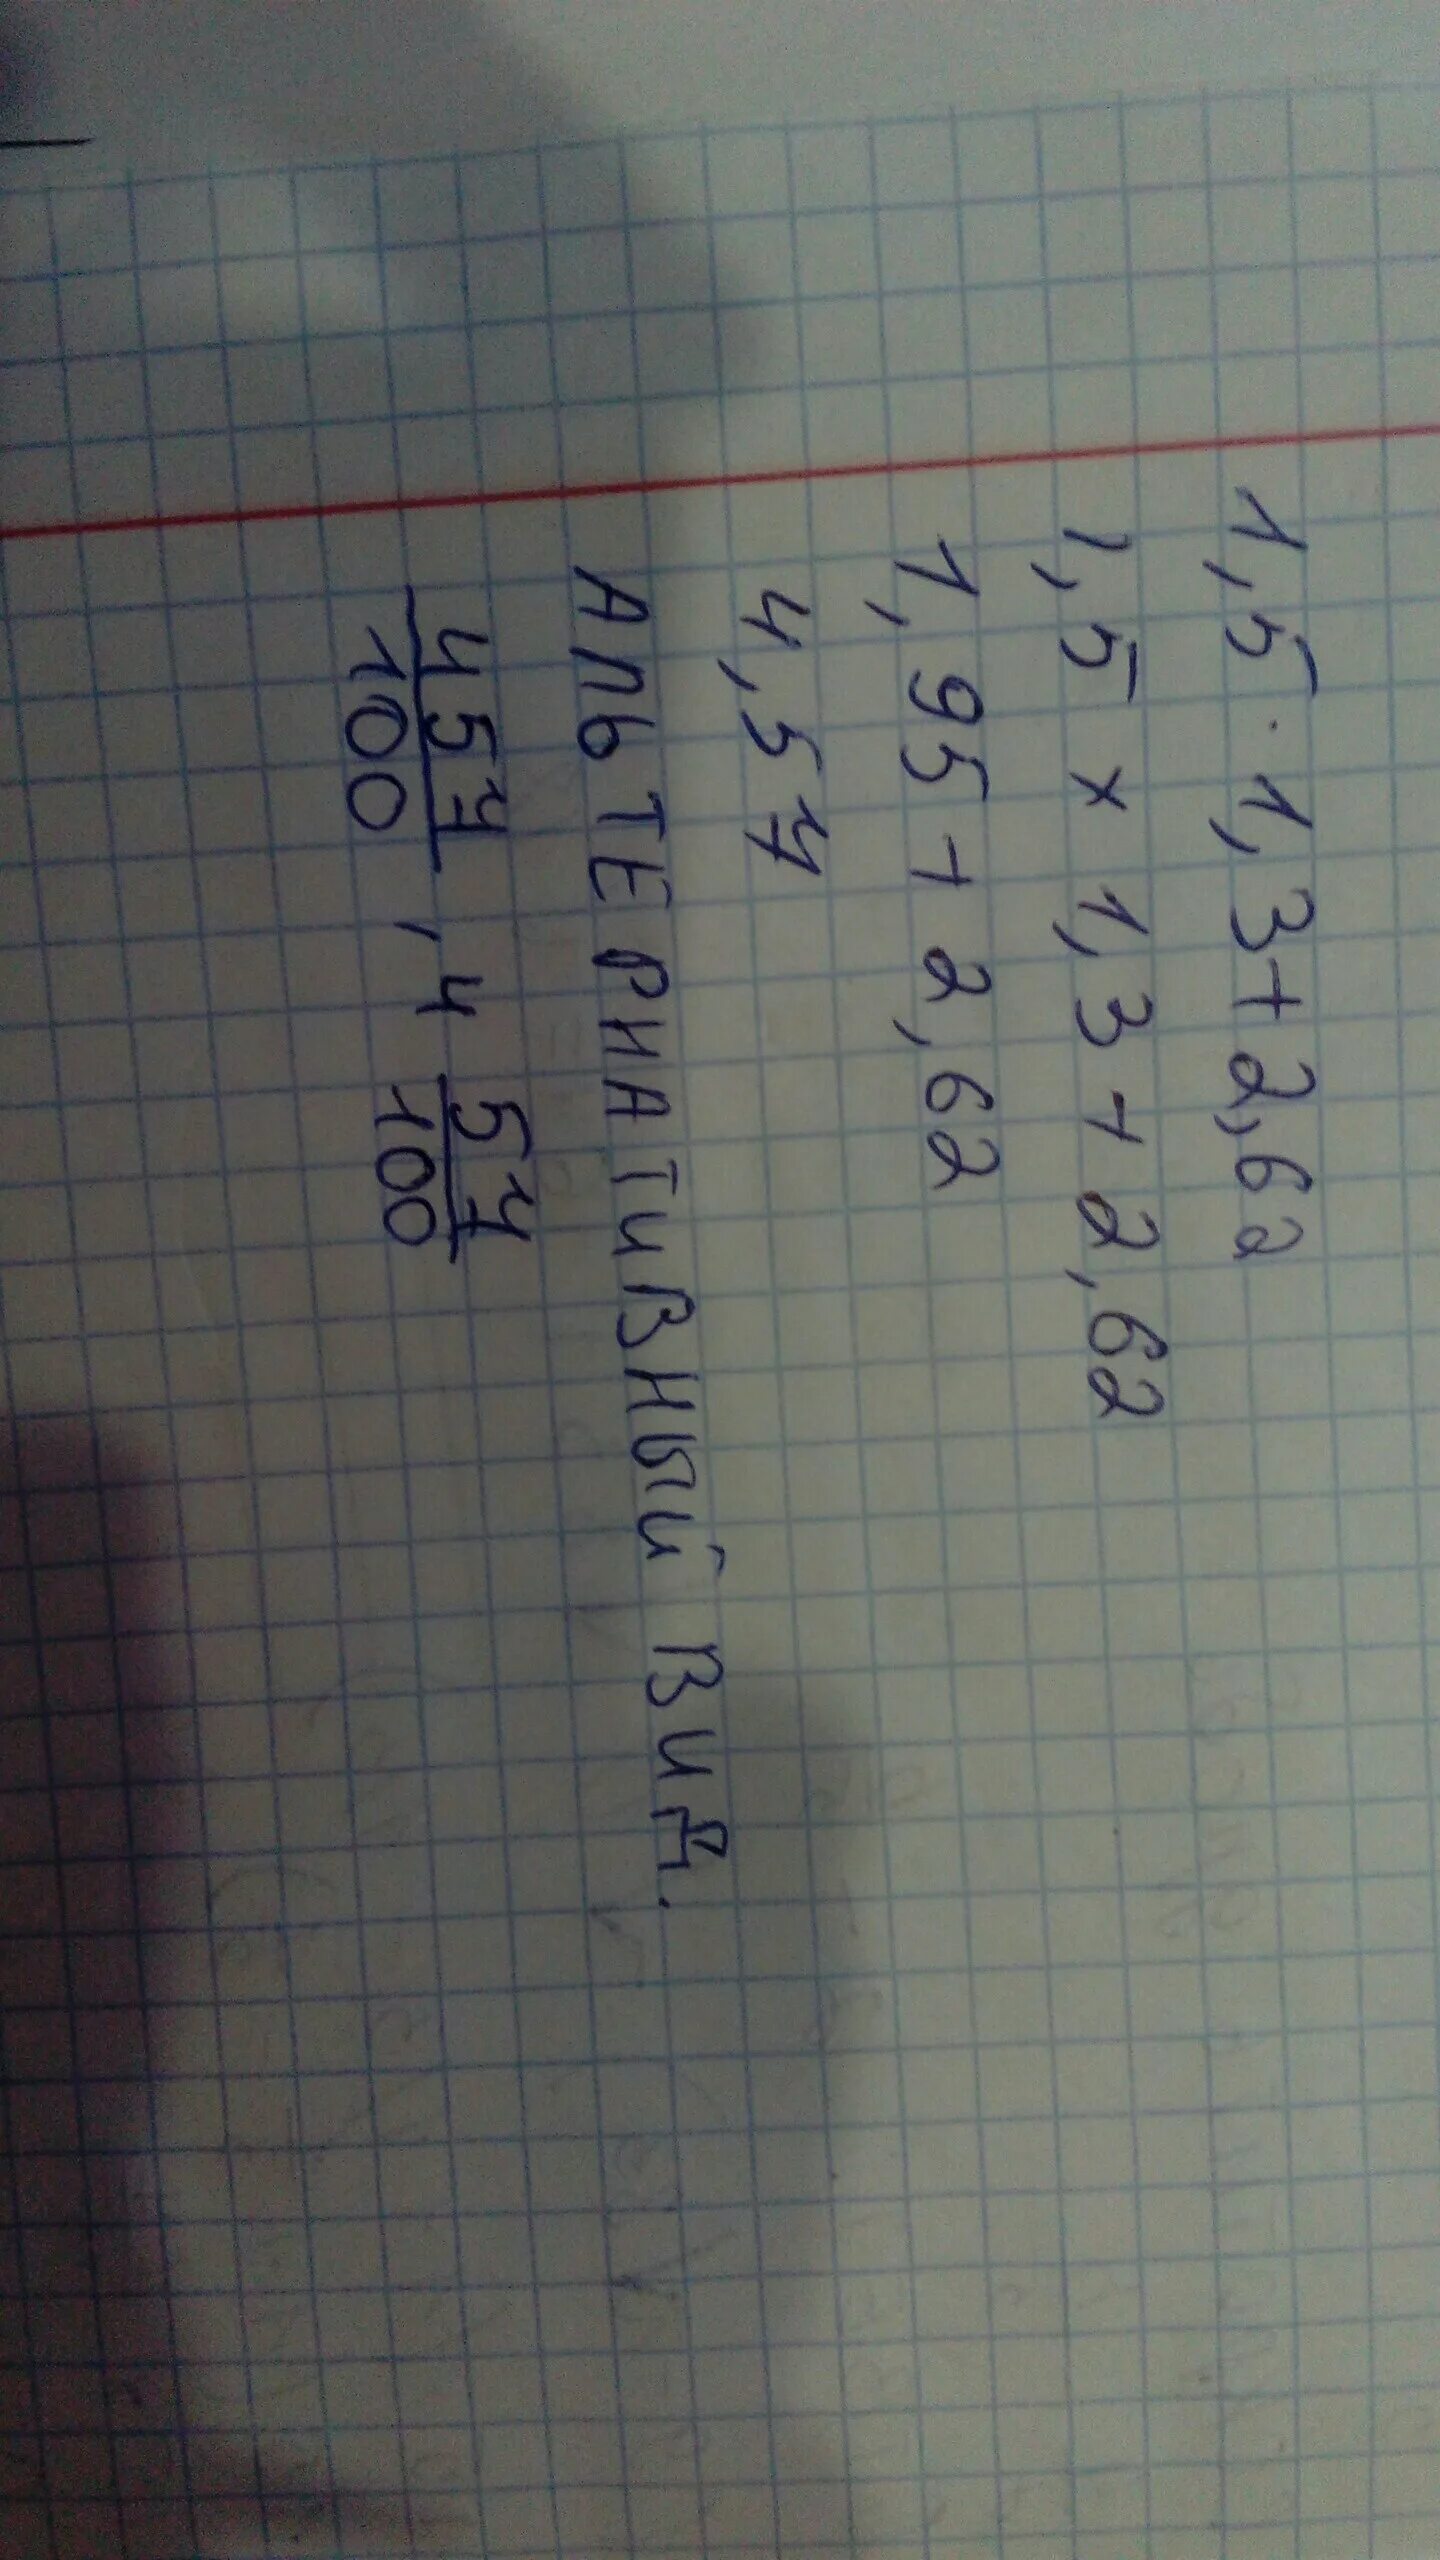 1,5 · 1,3 + 2,62
1,5 × 1,3 + 2,62
1,95 + 2,62
4,57
АЛЬТЕРНАТИВНЫЙ ВИД.
457/100 , 4 57/100